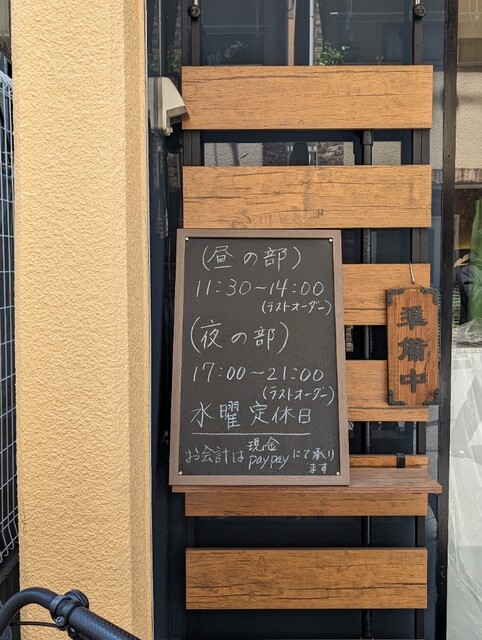 (昼の部)
11:30〜14:00
(ラストオーダー)
(夜の部)
17:00〜21:00
(ラストオーダー)
水曜定休日
お会計は現金paypayにて承ります
準備中